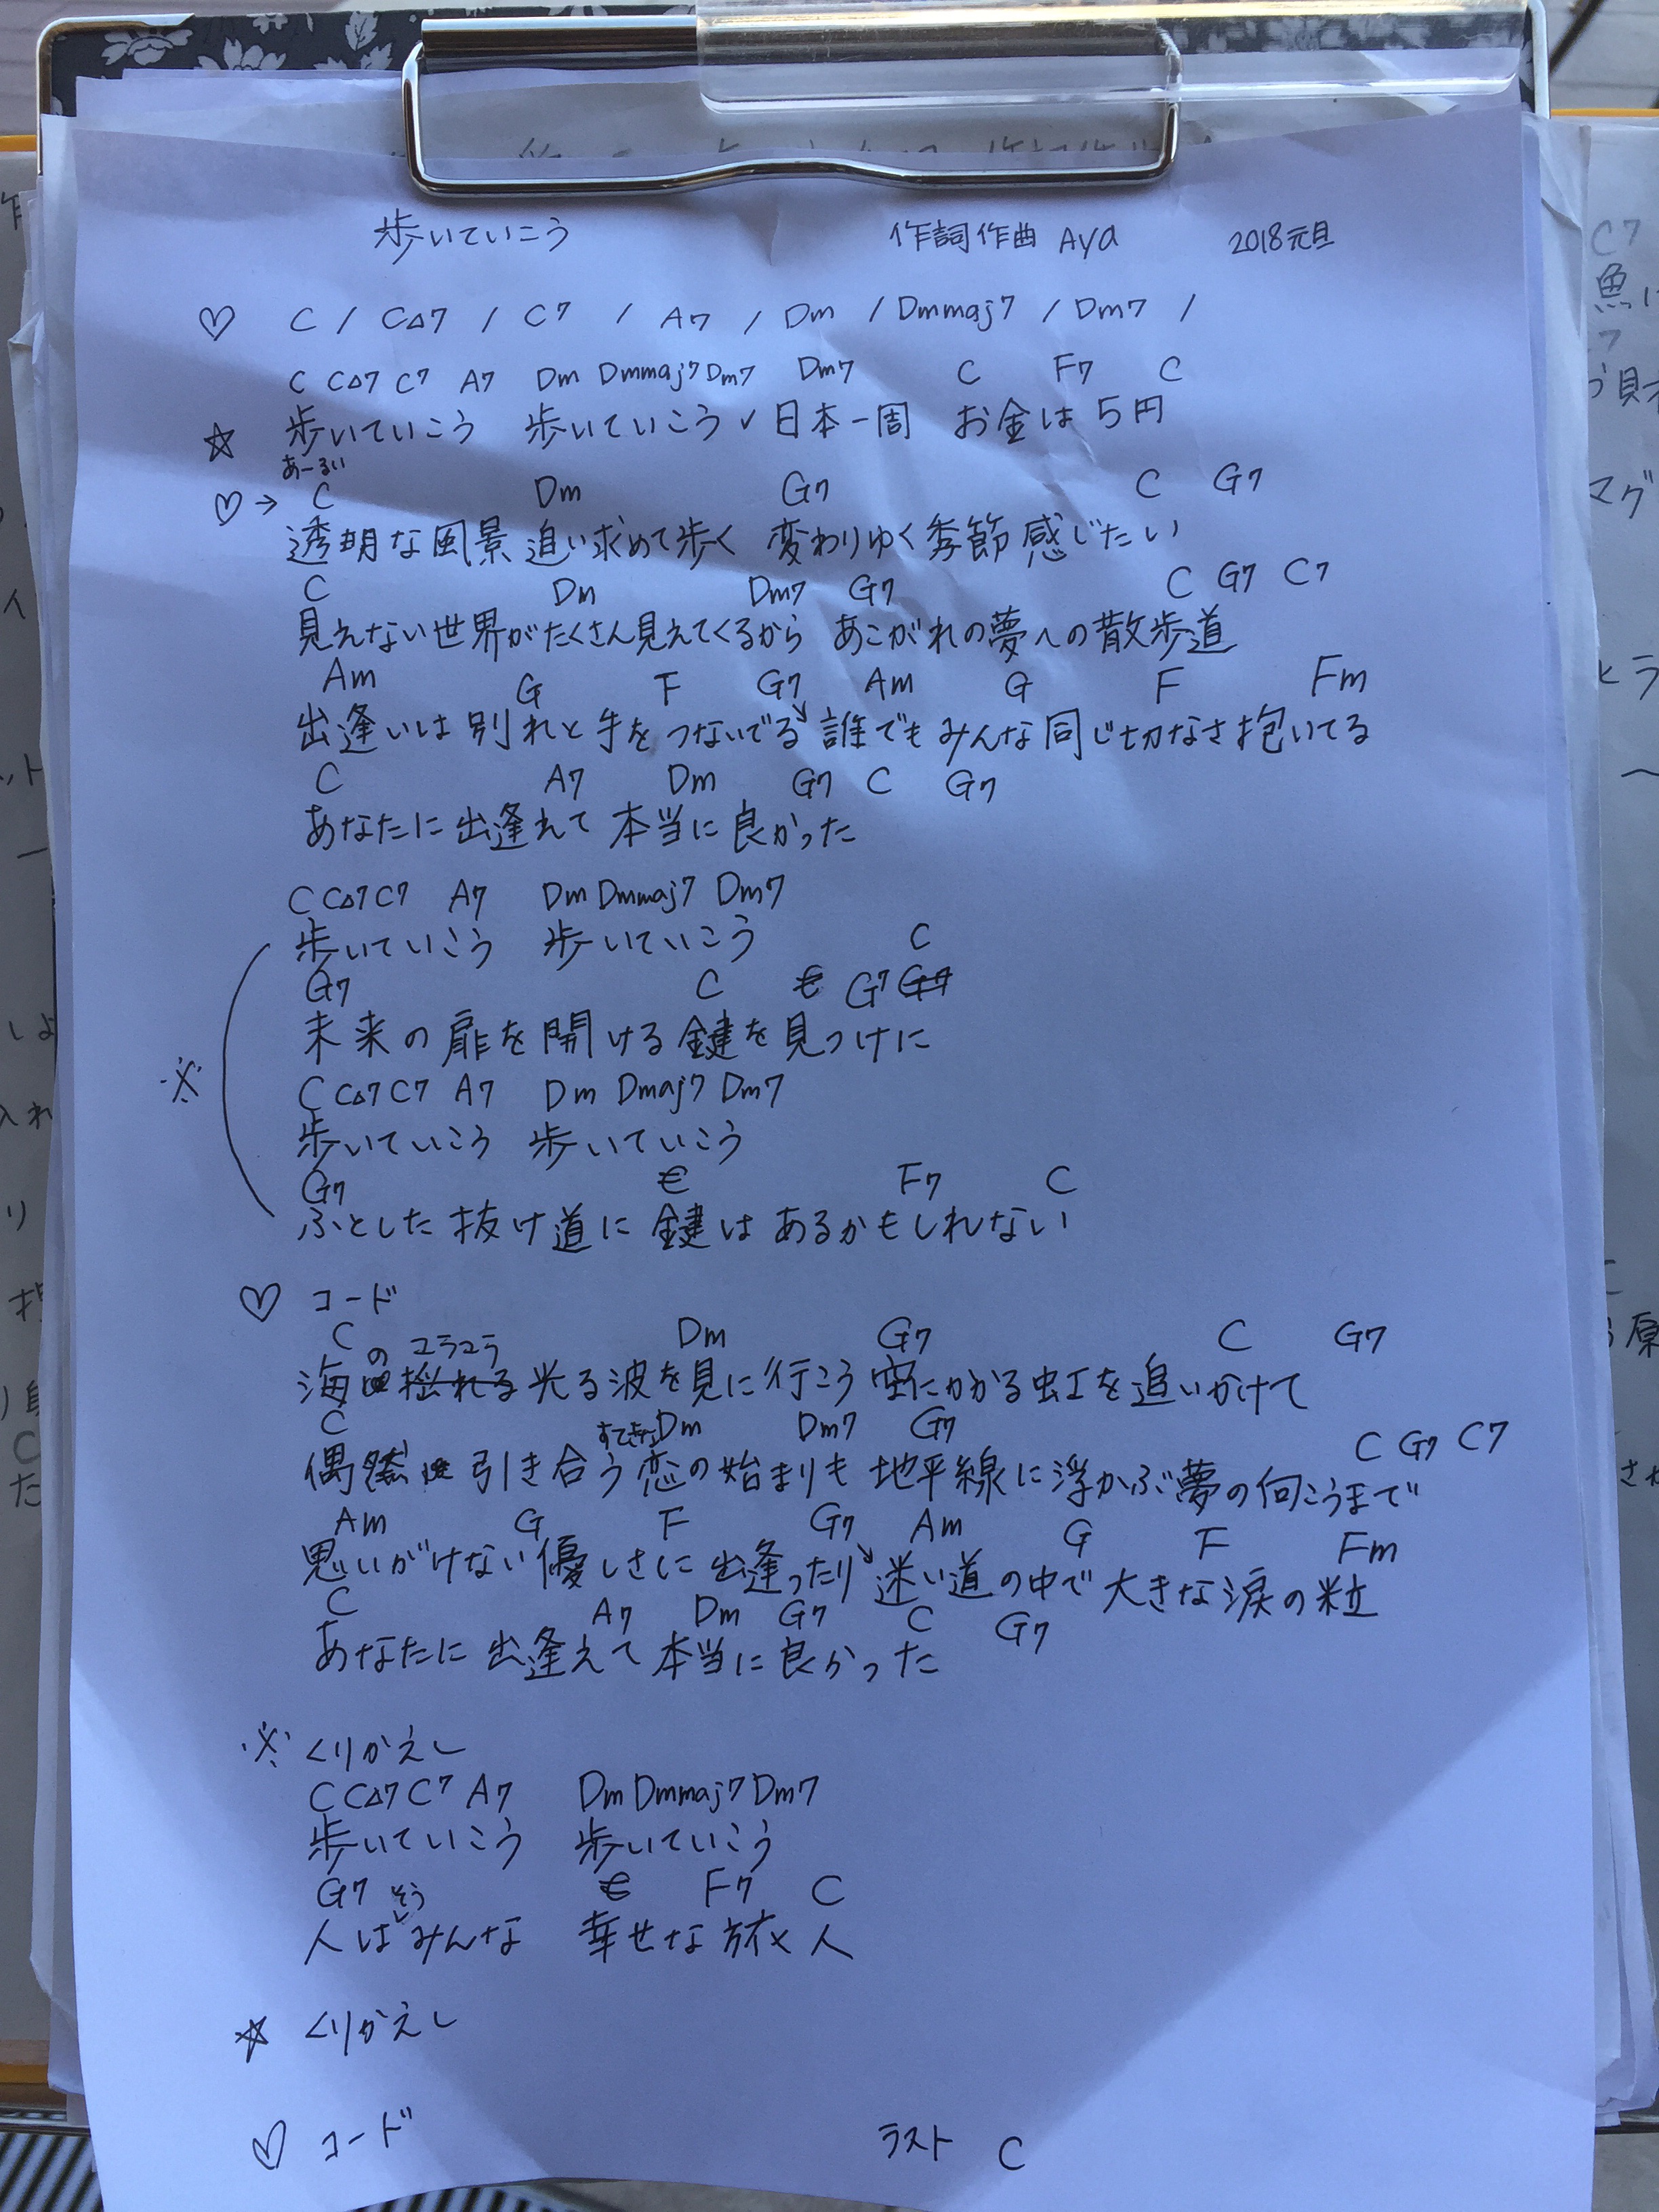 歩いていこう 作詞作曲 Aya 2018元旦
♡ C / C△7 / C7 / A7 / Dm / Dmmaj7 / Dm7 /
C C△7 C7 A7 Dm Dmmaj7 Dm7 Dm7 C F7 C
☆ 歩いていこう 歩いていこう ✓ 日本一周 お金は5円
あーるい
♡→ C Dm G7 C G7
透明な風景 追い求めて歩く 変わりゆく季節感じたい
C Dm Dm7 G7 C G7 C7
見えない世界がたくさん見えてくるから あこがれの夢への散歩道
Am G F G7 Am G F Fm
出逢いは別れと手をつないでる 誰でもみんな同じ切なさ抱いてる
C A7 Dm G7 C G7
あなたに出逢えて 本当に良かった
C C△7 C7 A7 Dm Dmmaj7 Dm7
歩いていこう 歩いていこう C
G7 C C G7 G7
未来の扉を開ける鍵を見つけに
※ C C△7 C7 A7 Dm Dmaj7 Dm7
歩いていこう 歩いていこう
G7 C F7 C
ふとした抜け道に 鍵はあるかもしれない
♡ コード
C の ユラユラ Dm G7 C G7
海 揺れる 光る波を見に行こう 空にかかる虹を追いかけて
C すてきな Dm Dm7 G7 C G7 C7
偶然 引き合う 恋の始まりも 地平線に浮かぶ夢の向こうまで
Am G F G7 Am G F Fm
思いがけない優しさに出逢ったり 迷い道の中で 大きな涙の粒
C A7 Dm G7 C G7
あなたに出逢えて 本当に良かった
※ くりかえし
C C△7 C7 A7 Dm Dmmaj7 Dm7
歩いていこう 歩いていこう
G7 そう C F7 C
人は みんな 幸せな旅人
☆ くりかえし
♡ コード ラスト C